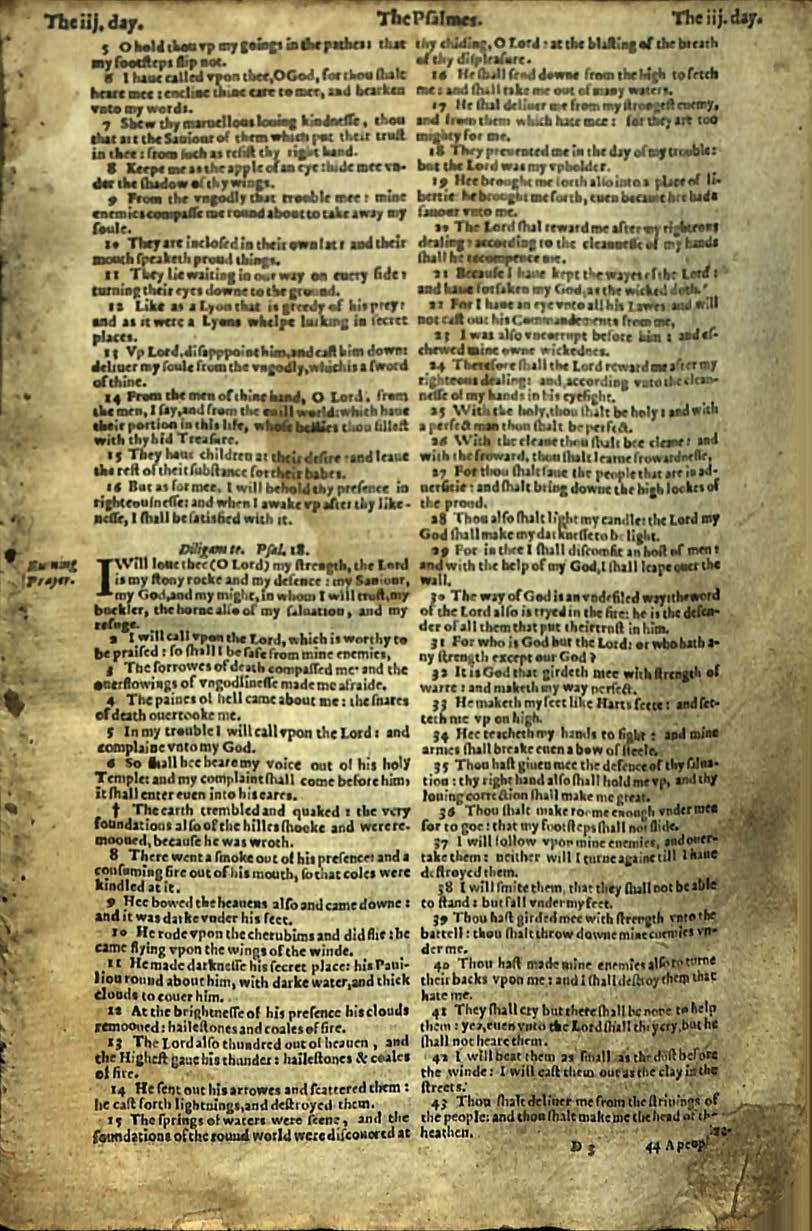 The iij. day.
The Psalmes.
The iij. day.
5 O hold thou vp my goings in the pathes: that
my footsteps slip not.
6 I haue called vpon thee, O God, for thou shalt
heare mee: encline thine eare to mee, and hearken
vnto my words.
7 Shew thy maruellous louing kindnesse, thou
that art the Sauiour of them which put their trust
in thee: from such as resist thy right hand.
8 Keepe me as the apple of an eye: hide mee vn-
der the shadow of thy wings.
9 From the vngodly that trouble mee: mine
enemies compasse me round about to take away my
soule.
10 They are inclosed in their own fat: and their
mouth speaketh proud things.
11 They lie waiting in our way on euery side:
turning their eyes downe to the ground.
12 Like as a Lyon that is greedy of his prey:
and as it were a Lyons whelpe lurking in secret
places.
13 Vp Lord, disapppoint him, and cast him downe:
deliuer my soule from the vngodly, which is a sword
of thine.
14 From the men of thine hand, O Lord, from
the men, I say, and from the euill world: which haue
their portion in this life, whose bellies thou fillest
with thy hid Treasure.
15 They haue children at their desire: and leaue
the rest of their substance for their babes.
16 But as for mee, I will behold thy presence in
righteousnesse: and when I awake vp after thy like-
nesse, I shall be satisfied with it.
Diligam te. Psal. 18.
Euening
Prayer.
I Will loue thee (O Lord) my strength, the Lord
is my stony rocke and my defence: my Sauiour,
my God, and my might, in whom I will trust, my
buckler, the horne also of my saluation, and my
refuge.
2 I will call vpon the Lord, which is worthy to
be praised: so shall I be safe from mine enemies,
3 The sorrowes of death compassed me: and the
ouerflowings of vngodlinesse made me afraide.
4 The paines of hell came about me: the snares
of death ouertooke me.
5 In my trouble I will call vpon the Lord: and
complaine vnto my God.
6 So shall hee heare my voice out of his holy
Temple: and my complaint shall come before him,
it shall enter euen into his eares.
† The earth trembled and quaked: the very
foundations also of the hilles shooke and were re-
mooued, because he was wroth.
8 There went a smoke out of his presence: and a
consuming fire out of his mouth, so that coles were
kindled at it.
9 Hee bowed the heauens also and came downe:
and it was darke vnder his feet.
10 He rode vpon the cherubims and did flie: he
came flying vpon the wings of the winde.
11 He made darknesse his secret place: his Paui-
lion round about him, with darke water, and thick
clouds to couer him.
12 At the brightnesse of his presence his clouds
remooued: hailestones and coales of fire.
13 The Lord also thundred out of heauen, and
the Highest gaue his thunder: hailestones & coales
of fire.
14 He sent out his arrowes and scattered them:
he cast forth lightnings, and destroyed them.
15 The springs of waters were seene, and the
foundations of the round world were discouered at
thy chiding, O Lord: at the blasting of the breath
of thy displeasure.
16 He shall send downe from the high to fetch
me: and shall take me out of many waters.
17 He shal deliuer me from my strongest enemy,
and from them which hate mee: for they are too
mighty for me.
18 They preuented me in the day of my trouble:
but the Lord was my vpholder.
19 Hee brought me forth also into a place of li-
bertie: he brought me forth, euen because he had a
fauour vnto me.
20 The Lord shal reward me after my righteous
dealing: according to the cleannesse of my hands
shall he recompence me.
21 Because I haue kept the wayes of the Lord:
and haue forsaken my God, as the wicked doth.
22 For I haue an eye vnto all his Lawes and will
not cast out his Commandements from me,
23 I was also vncorrupt before him: and es-
chewed mine owne wickednes.
24 Therefore shall the Lord reward me after my
righteous dealing: and according vnto the clean-
nesse of my hands in his eyesight.
25 With the holy, thou shalt be holy: and with
a perfect man thou shalt be perfect.
26 With the cleane thou shalt bee cleane: and
with the froward, thou shalt learne frowardnesse,
27 For thou shalt saue the people that are in ad-
uersitie: and shalt bring downe the high lookes of
the proud.
28 Thou also shalt light my candle: the Lord my
God shall make my darknesse to be light.
29 For in thee I shall discomfit an host of men:
and with the help of my God, I shall leape ouer the
wall.
30 The way of God is an vndefiled way: the word
of the Lord also is tryed in the fire: he is the defen-
der of all them that put their trust in him.
31 For who is God but the Lord: or who hath a-
ny strength except our God?
32 It is God that girdeth mee with strength of
warre: and maketh my way perfect.
33 He maketh my feet like Harts feete: and set-
teth me vp on high.
34 Hee teacheth my hands to fight: and mine
armes shall breake euen a bow of steele.
35 Thou hast giuen mee the defence of thy salua-
tion: thy right hand also shall hold me vp, and thy
louing correction shall make me great.
36 Thou shalt make roome enough vnder mee
for to goe: that my footsteps shall not slide.
37 I will follow vpon mine enemies, and ouer-
take them: neither will I turne againe till I haue
destroyed them.
38 I will smite them, that they shall not be able
to stand: but fall vnder my feet.
39 Thou hast girded mee with strength vnto the
battell: thou shalt throw downe mine enemies vn-
der me.
40 Thou hast made mine enemies also to turne
their backs vpon me: and I shall destroy them that
hate me.
41 They shall cry but there shall be none to help
them: yea, euen vnto the Lord shall they cry, but he
shall not heare them.
42 I will beat them as small as the dust before
the winde: I will cast them out as the clay in the
streets.
43 Thou shalt deliuer me from the striuings of
the people: and thou shalt make me the head of the
heathen.
D 3
44 A peop